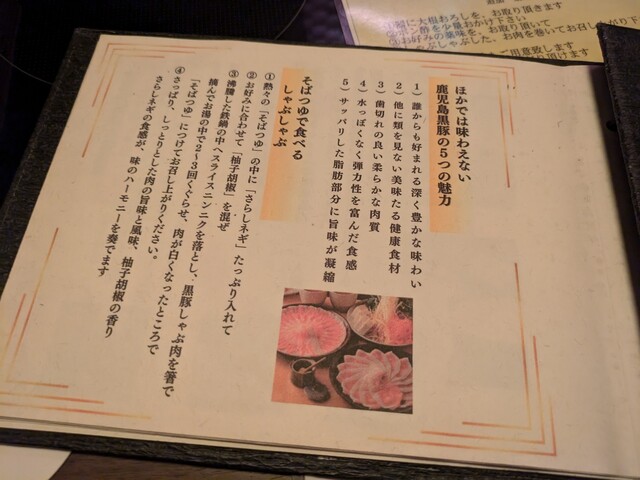 ほかでは味わえない
鹿児島黒豚の5つの魅力
1）誰からも好まれる深く豊かな味わい
2）他に類を見ない美味たる健康食材
3）歯切れの良い柔らかな肉質
4）水っぽくなく弾力性を富んだ食感
5）サッパリした脂肪部分に旨味が凝縮
そばつゆで食べる
しゃぶしゃぶ
①熱々の「そばつゆ」の中に「さらしネギ」たっぷり入れて
②お好みに合わせて「柚子胡椒」を混ぜ
③沸騰した鉄鍋の中へスライスニンニクを落とし、黒豚しゃぶ肉を箸で
摘んでお湯の中で2～3回くぐらせ、肉が白くなったところで
「そばつゆ」につけてお召し上がりください。
④さっぱり、しっとりとした肉の旨味と風味、柚子胡椒の香り
さらしネギの食感が、味のハーモニーを奏でます
①器に大根おろしを、お取り頂きます
②ポン酢を少量おかけ下さい
③お好みの薬味を、お取り頂いて